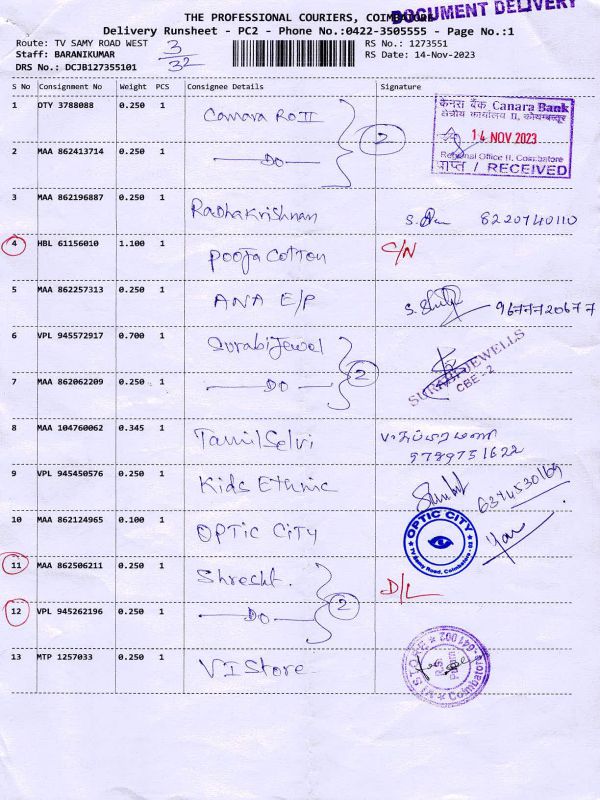 DOCUMENT DELIVERY
THE PROFESSIONAL COURIERS, COIMBATORE
Delivery Runsheet - PC2 - Phone No.:0422-3505555 - Page No.:1
Route: TV SAMY ROAD WEST 3/32 RS No.: 1273551
Staff: BARANIKUMAR RS Date: 14-Nov-2023
DRS No.: DCJB127355101
S No Consignment No Weight PCS Consignee Details Signature
1 OTY 3788088 0.250 1 Canara Ro II
2 MAA 862413714 0.250 1 —DO— 2
केनरा बैंक Canara Bank
क्षेत्रीय कार्यालय II, कोयम्बत्तूर
14 NOV 2023
Regional Office II, Coimbatore
प्राप्त / RECEIVED
3 MAA 862196887 0.250 1 Radhakrishnan 8220740110
4 HBL 61156010 1.100 1 Pooja Cotton C/N
5 MAA 862257313 0.250 1 ANA E/P
6 VPL 945572917 0.700 1 Surabi Jewel
7 MAA 862062209 0.250 1 —DO— 2
SURABI JEWELLS
CBE - 2
8 MAA 104760062 0.345 1 Tamil Selvi
9789751622
9 VPL 945450576 0.250 1 Kids Ethnic 6374530169
10 MAA 862124965 0.100 1 OPTIC CITY
OPTIC CITY
TV Samy Road, Coimbatore - 02
11 MAA 862506211 0.250 1 Shresht. D/L
12 VPL 945262196 0.250 1 —DO— 2
13 MTP 1257033 0.250 1 VI Store
VI STORE
R.S. Puram
Coimbatore - 641 002